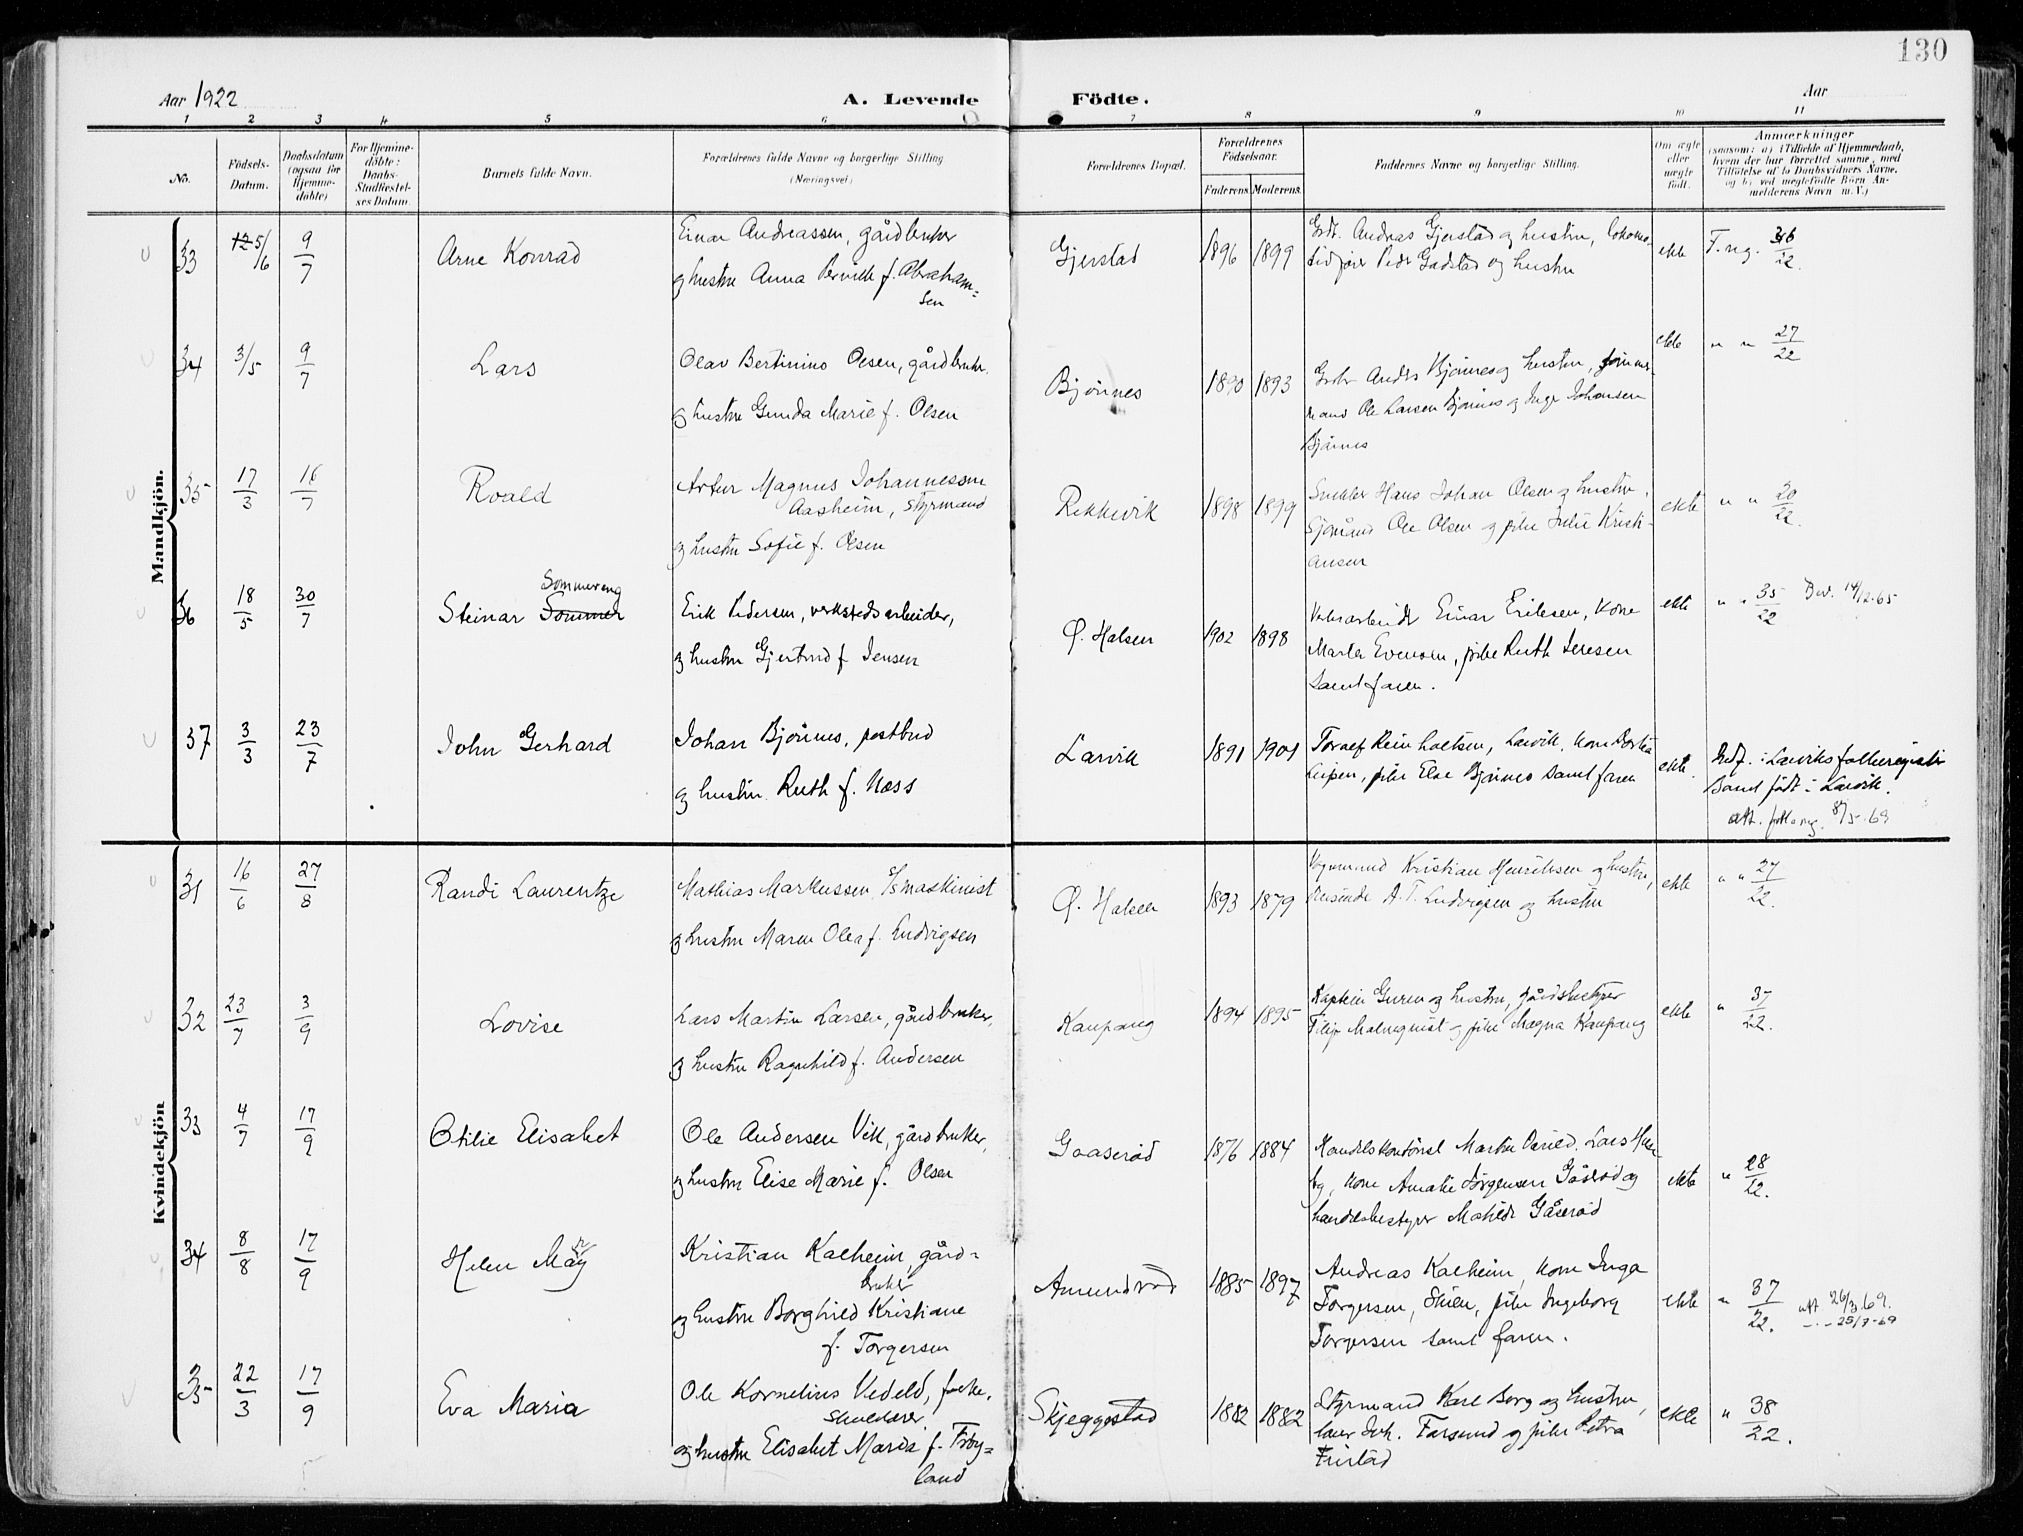 130
Aar 1922
A. Levende Födte.
Aar
1 2 3 4 5 6 7 8 9 10 11
No.
Födsels-
Datum.
Daabsdatum
(ogsaa for
Hjemme-
döbte)
For Hjemme-
döbte:
Daabs-
Stadfæstel-
ses Datum.
Barnets fulde Navn.
Forældrenes fulde Navne og borgerlige Stilling
(Næringsvei)
Forældrenes Bopæl.
Forældrenes
Födselsaar.
Faderens. Moderens.
Faddernes Navne og borgerlige Stilling.
Om ægte
eller
uægte
födt.
Anmærkninger
(saasom: a) i Tilfælde af Hjemmedaab,
hvem der har forrettet samme, med
Tilföielse af to Daabsvidners Navne,
og b) ved uægtefödte Börn An-
melderens Navn m. V.)
Mandkjön.
33 5/6 9/7 Arne Konrad
Einar Andreassen, gårdbruker
og hustru Anna f. Abraham=
sen
Gjerstad 1896 1899
Grdt. Andreas Gjerstad og hustru, lokomo-
tivfører Peder Gadstad og hustru
ekte F. reg. 36/22.
34 3/5 9/7 Lars
Olav Bertinius Olsen, gårdbruker
og hustru Gunda Marie f. Olsen
Bjønnes 1890 1893
Anders Bjønnes og hustru, tømmer-
mand Ole Larsen Bjønnes og Inga Johansen
Bjønnes
ekte " " 27/22
35 17/3 16/7 Roald
Artur Magnus Johannessen
Aasheim, Styrmand
og hustru Sofie f. Olsen
Rekkevik 1898 1899
Snekker Hans Johan Olsen og hustru,
Sjømand Ole Olsen og pike Julie Kristi-
ansen
ekte " " 30/22.
36 18/5 30/7 Steinar Sommer
Sommereng
Erik Pedersen, verkstedsarbeider,
og hustru Gjertrud f. Jensen
Ø. Halsen 1902 1898
Einar Eriksen, kone
Marta Evensen, pike Ruth Jensen
samt faren.
ekte " " 35/22 Bev. 14/12-65
37 3/3 23/7 John Gerhard
Johan Bjønnes, postbud
og hustru Ruth f. Næss
Larvik 1891 1901
Toralf Reinholtsen, Larvik, kone
pike Else Bjønnes samt faren
ekte. Indf. i Larviks folkeregister
samt født i Larvik.
att. 8/5-69
Kvindekjön
31 16/6 27/8 Randi Laurentze
Mathias Markussen, maskinist
og hustru Maren Olea f. Ludvigsen
Ø. Halsen 1893 1879
Kristian Henriksen og hustru,
reisende A. T. Ludvigsen og hustru
ekte " " 27/22.
32 23/7 3/9 Lovise
Lars Martin Larsen, gårdbruker,
og hustru Ragnhild f. Andersen
Kaupang 1894 1895
Kaptein Guren og hustru, gårdsbestyrer
Filip Malmquist og pike Magna Kaupang
ekte " 37/22.
33 4/7 17/9 Otilie Elisabet
Ole Andersen Vik, gårdbruker,
og hustru Elise Marie f. Olsen
Gaaserød 1876 1884
Martin
kone Amalie Jørgensen Gåserød og
handelsbestyrer Matilde Gåserød
ekte " 28/22.
34 8/8 17/9 Helen May
Kristian Kalheim, gård-
bruker
og hustru Borghild Kristiane
f. Torgersen
Amundrød 1885 1897
Andreas Kalheim, kone Inga
Torgersen, Skien, pike Ingeborg
Torgersen samt faren.
ekte " 37/22. att 26/3.69.
— " — 25/7-69
35 22/3 17/9 Eva Maria
Ole Kornelius Vedeld, folke-
skolelærer
og hustru Elisabet Maria f. Frøy=
land
Skjeggestad 1882 1882
Styrmand Karl Borg og hustru,
lærer Joh. Farsund og pike Petra
Freistad
ekte " 38/22.